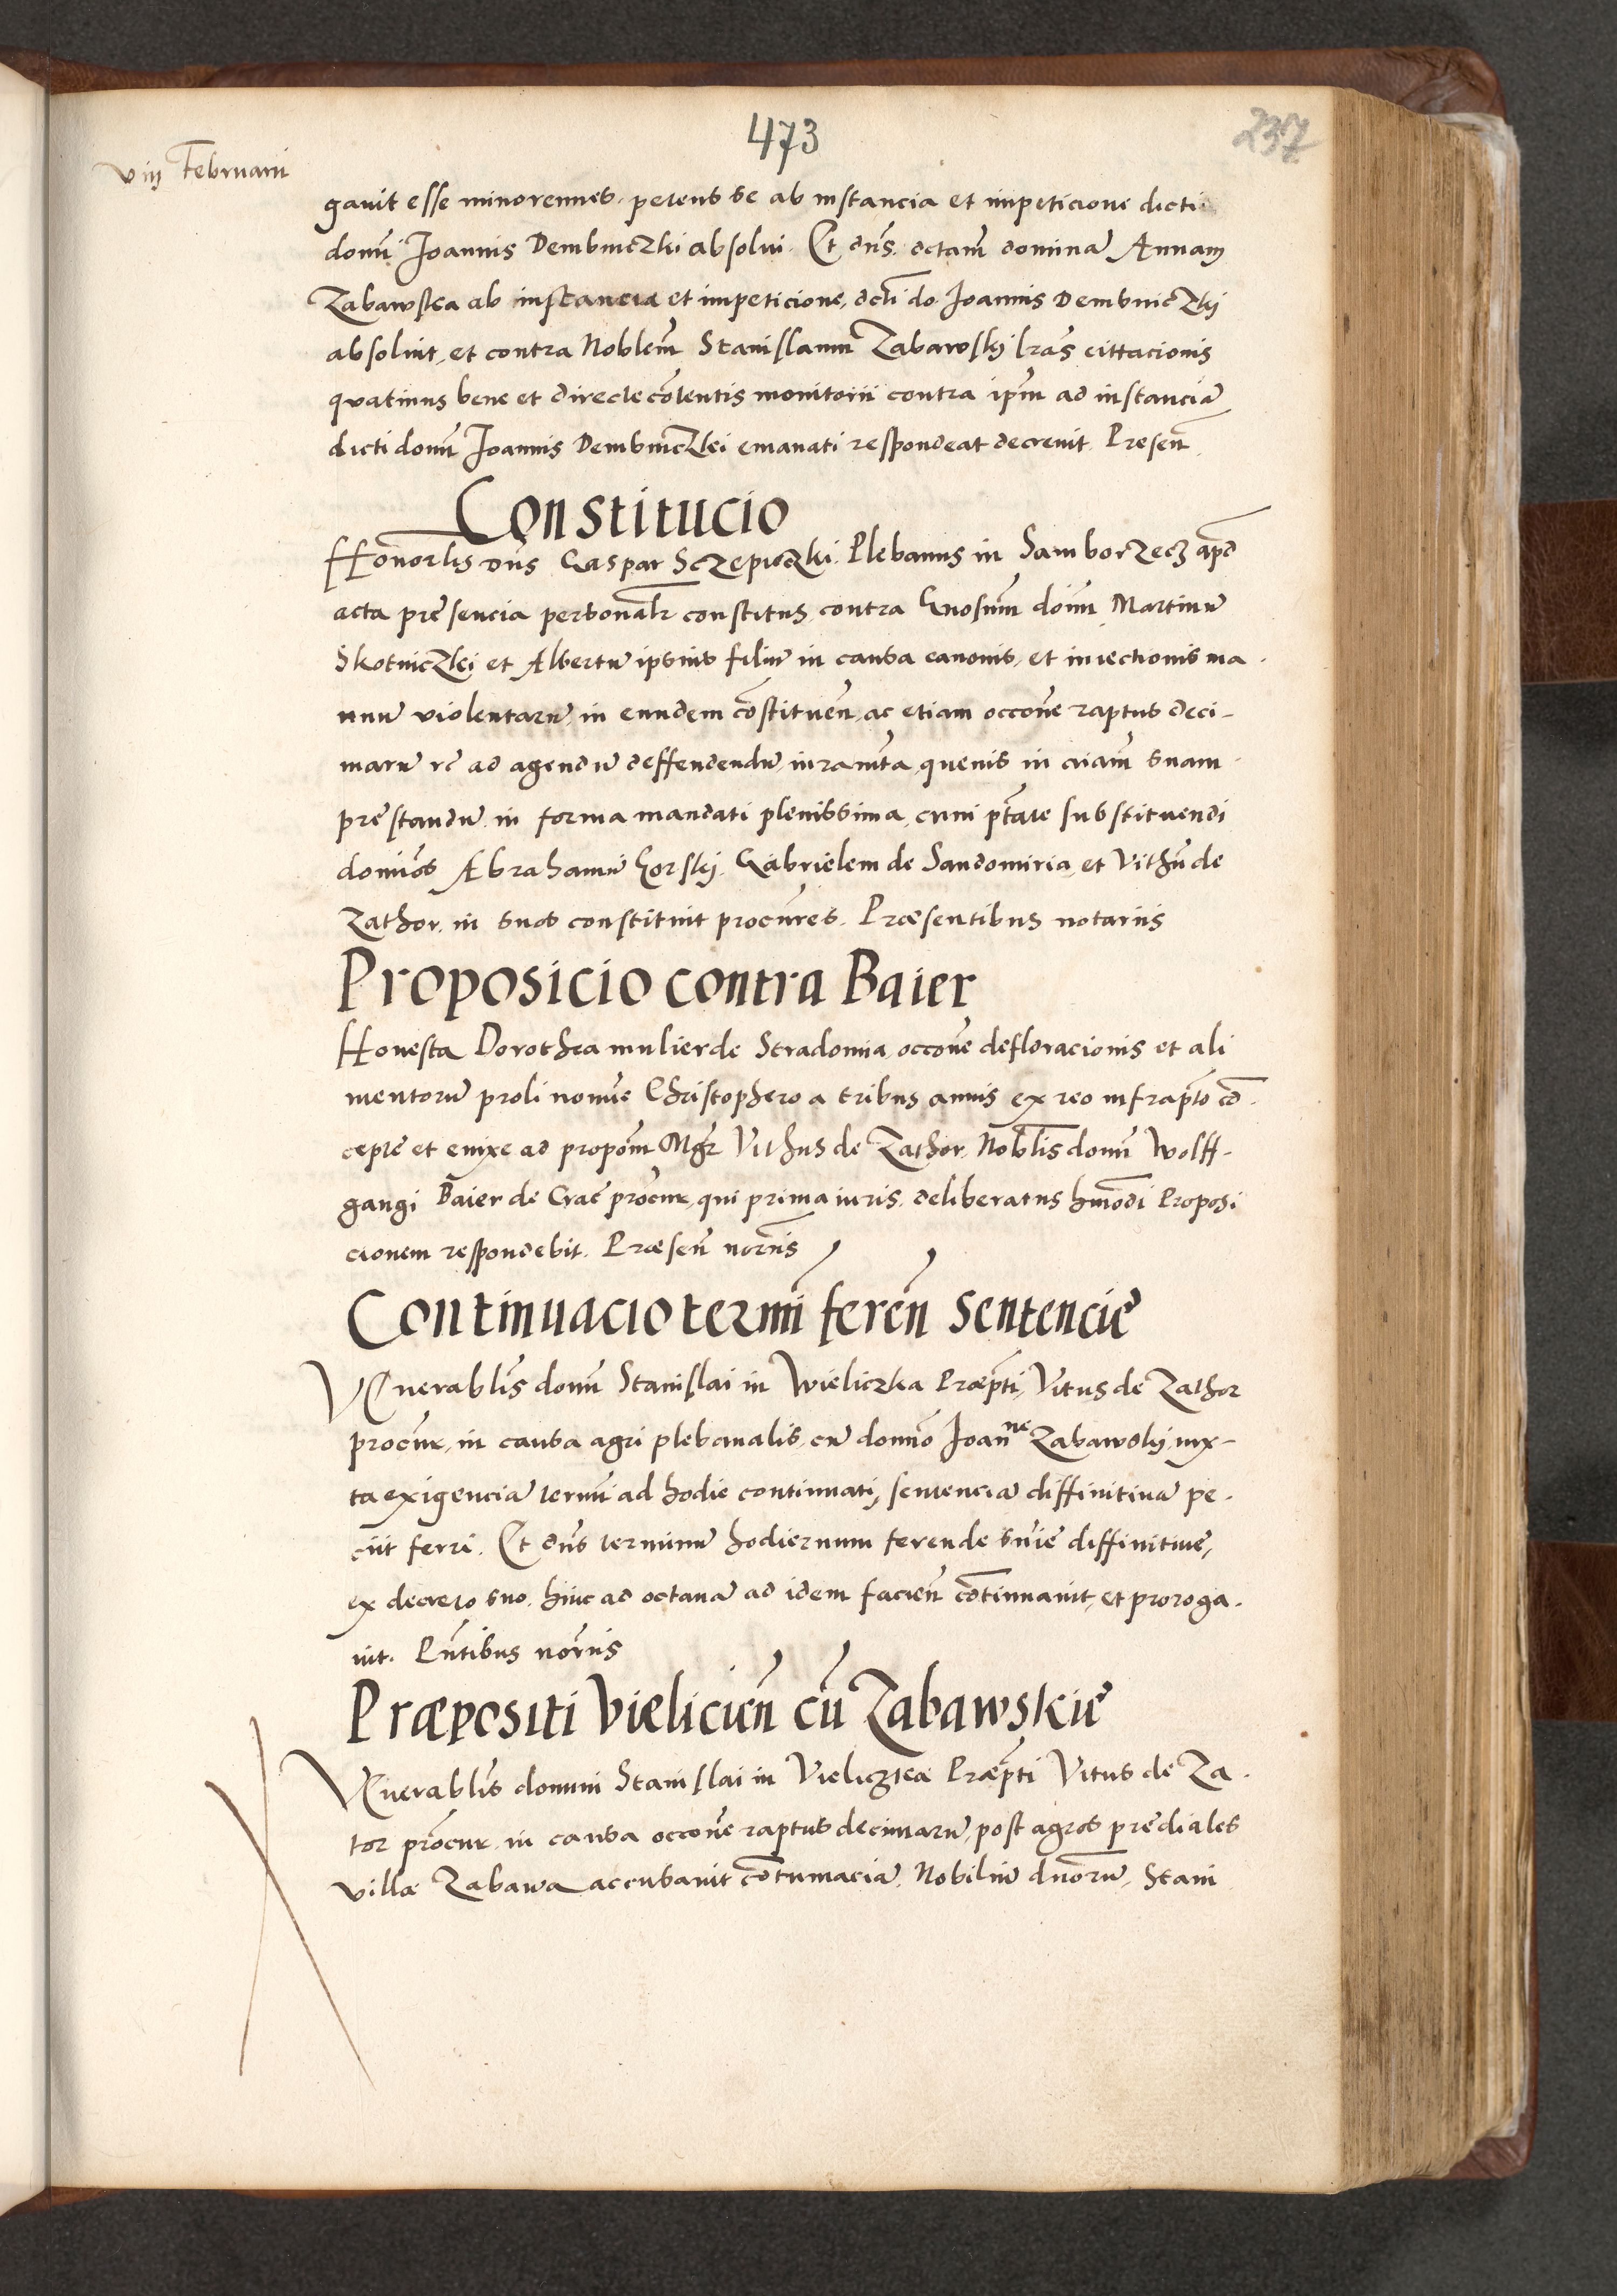 473
237
viij Februarii
gauit esse minorennes. petens se ab instancia et impeticione dicti
domī Joannis Dembniczki absolui. Et dn̄s. dctam̄ dominā Annam
Zabawska ab instancia et impeticione, dcti do Joannis Dembniczkj
absoluit, et contra Noblem̄ Stanislaum Zabawskj lrās cittacionis
quatinus bene et directe cōtentis monitorii contra ipm̄ ad instanciā
dicti domī Joannis Dembniczki emanati respondeat decreuit. Presen̄
Constitucio
Honorlis dn̄s Caspar Sczepiczki. Plebanus in Samborzecz apd
acta presencia personalr̄ constitus, contra Gnosum̄ domī Martinū
Skotniczki et Albertū ipsius filiū in causa canonis, et iniectionis ma-
nuū violentarū, in eundem cōstituen̄, ac etiam occōne raptus deci-
marū rc̄ ad agendū deffendendū, iuramta, queuis in aīam suam
prestandū. in forma mandati plenissima, cum ptāte substituendi
domīos Abrahamū Gorskj. Gabrielem de Sandomiria, et Vithū de
Zathor. in suos constituit procūres. Præsentibus notariis
Proposicio contra Baier
Honesta Dorothea mulier de Stradomia, occōne defloracionis et ali
mentorū proli nomīe Christophero a tribus annis ex reo infraptō cō-
cepte et enixe ad propom̄ Mgr̄ Vithus de Zathor. Noblis domī Wolff-
gangi Baier de Crac̄ procur̄, qui prima iuris. deliberatus hmōdi Proposi
cionem respondebit. Præsen̄ norīis
Continuacio termī feren̄ Sentencie
Venerablis domī Stanislai in Wieliczka Præpti, Vitus de Zathor
procur̄, in causa agri plebanalis, cū domīo Joanne Zabawskj, iux-
ta exigenciā termī ad hodie continuati, sentenciā diffinitiuā pe-
ciit ferri. Et dn̄s terminū hodiernum ferende snīe diffinitiue,
ex decreto suo. hinc ad octauā ad idem facien̄ cōtinuauit, et proroga-
uit. Pn̄tibus norīis
Præpositi Vielicien̄ cū Zabawskie
Venerablis domini Stanislai in Vieliczka Præpti Vitus de Za-
tor procur̄ in causa occōne raptus decimarū, post agros prediales
villæ Zabawa accusauit cōtumaciā. Nobiliū dnōrū, Stani